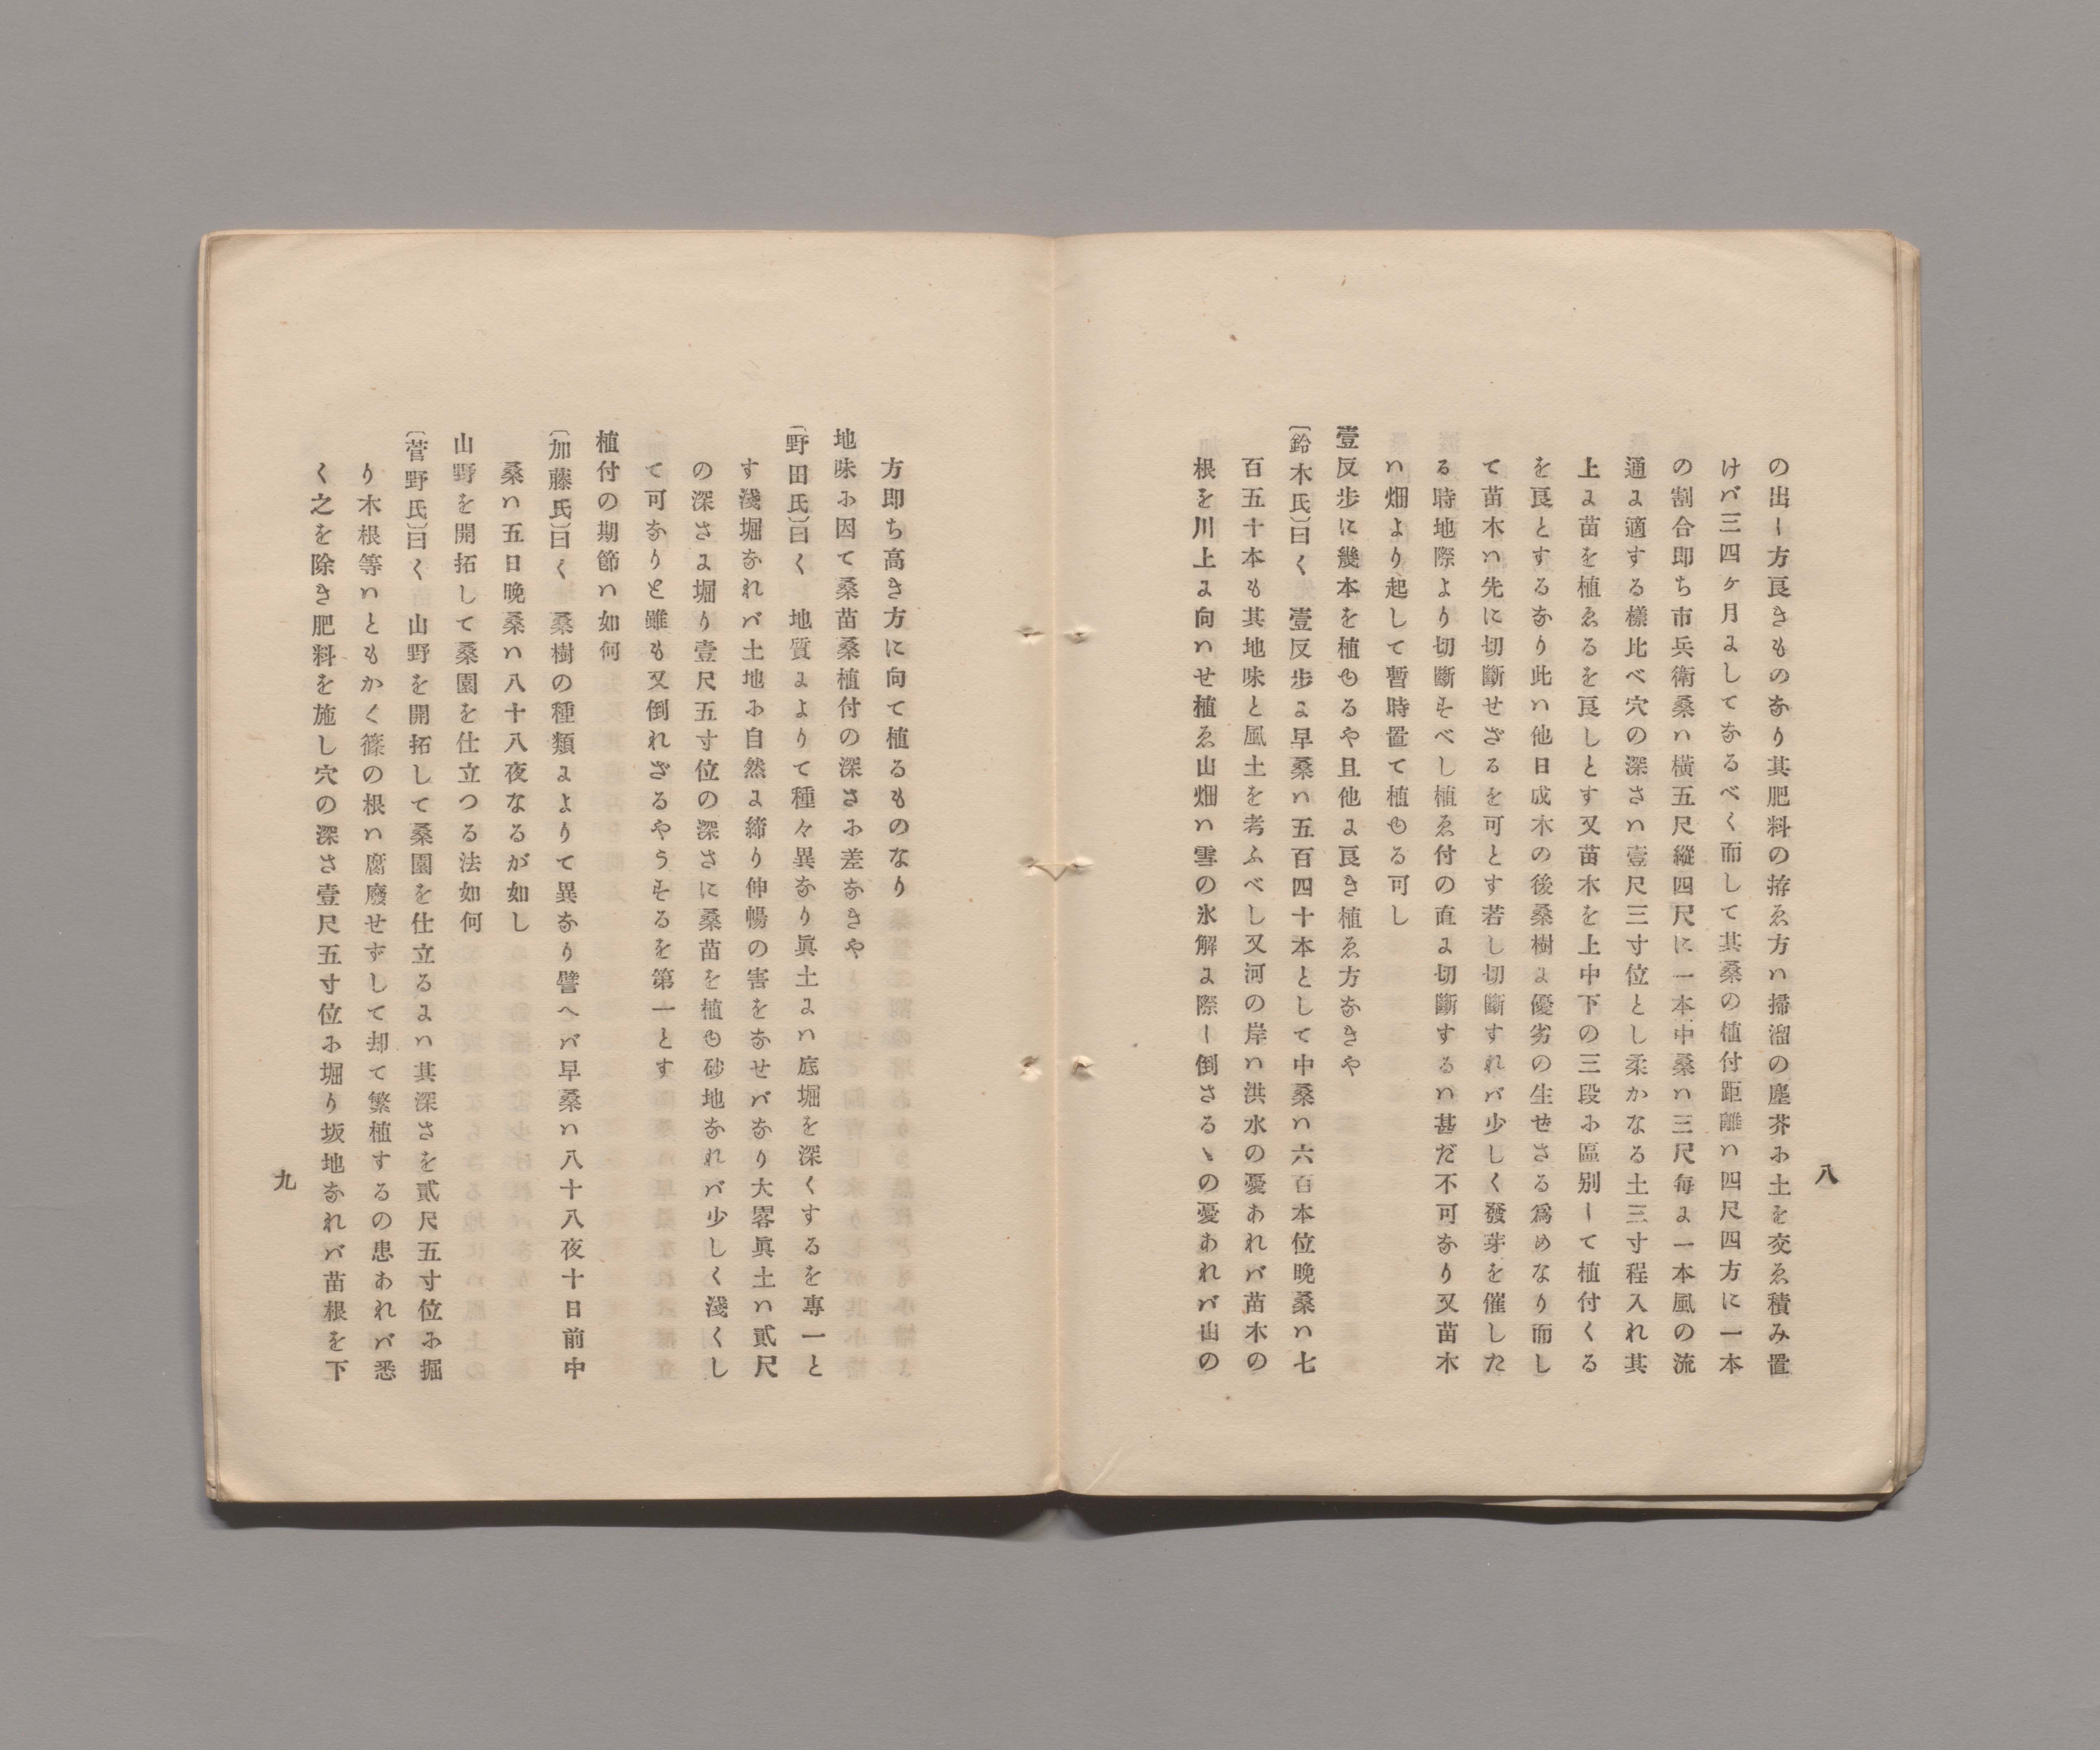 八
の出し方良きものなり其肥料の拵ゑ方ハ掃溜の塵芥に土を交ゑ積み置
けバ三四ケ月にしてなるべく而して其桑の植付距離ハ四尺四方に一本
の割合即ち市兵衛桑ハ横五尺縱四尺に一本中桑ハ三尺毎に一本風の流
通に適する樣比べ穴の深さハ壹尺三寸位とし柔かなる土三寸程入れ其
上に苗を植ゑるを良しとす又苗木を上中下の三段に區別して植付くる
を良とするなり此ハ他日成木の後桑樹に優劣の生せさる爲めなり而し
て苗木ハ先に切斷せざるを可とす若し切斷すれバ少しく發芽を催した
る時地際より切斷すべし植ゑ付の直に切斷するハ甚だ不可なり又苗木
ハ畑より起して暫時置て植もる可し
壹反步に幾本を植もるや且他に良き植ゑ方なきや
〔鈴木氏〕曰く 壹反步に早桑ハ五百四十本として中桑ハ六百本位晩桑ハ七
百五十本も其地味と風土を考ふべし又河の岸ハ洪水の憂あれバ苗木の
根を川上に向ハせ植ゑ山畑ハ雪の氷解に際し倒さるゝの憂あれバ山の
方即ち高き方に向て植るものなり
地味に因て桑苗桑植付の深さに差なきや
〔野田氏〕曰く 地質により て種々異なり眞土にハ底堀を深くするを專一と
す淺堀なれバ土地に自然に締り伸暢の害をなせバなり大畧眞土ハ貳尺
の深さに堀り壹尺五寸位の深さに桑苗を植も砂地なれバ少しく淺くし
て可なりと雖も又倒れざるやうするを第一とす
植付の期節ハ如何
〔加藤氏〕曰く 桑樹の種類によりて異なり譬へバ早桑ハ八十八夜十日前中
桑ハ五日晩桑ハ八十八夜なるが如し
山野を開拓して桑園を仕立つる法如何
〔菅野氏〕曰く 山野を開拓して桑園を仕立るにハ其深さを貳尺五寸位に掘
り木根等ハともかく篠の根ハ腐廢せずして却て繁植するの患あれバ悉
く之を除き肥料を施し穴の深さ壹尺五寸位に堀り坂地なれバ苗根を下
九